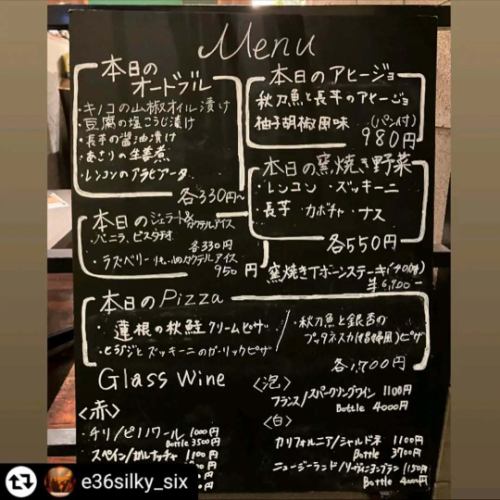 Menu
本日の
オードブル
・キノコの山椒オイル漬け
・豆腐の塩こうじ漬け
・長芋の醤油漬け
・あさりの生姜煮
・レンコンのアラビアータ
各330円~
本日のアヒージョ
秋刀魚と長芋のアヒージョ
柚子胡椒風味 (パン付)
980円
本日の窯焼き野菜
・レンコン ・ズッキーニ
・長芋 ・カボチャ ・ナス
各550円
本日のジェラート&カクテルアイス
・バニラ、ピスタチオ
各330円
・ラズベリー カクテルアイス
950円
窯焼きTボーンステーキ
本日のPizza
・蓮根の秋鮭クリームピザ
ズッキーニのガーリックピザ
・秋刀魚と銀杏の
プッタネスカ ピザ
各1,700円
Glass Wine
<赤>
・チリ/ピノノワール 1000円
Bottle 3500円
スペイン/ガルナッチャ 1100円
Bottle
<泡>
フランス/スパークリングワイン 1100円
Bottle 4000円
<白>
カリフォルニア/シャルドネ 1100円
Bottle 3700円
ニュージーランド/ソーヴィニヨンブラン 1150円
Bottle 4000円
e36silky_six